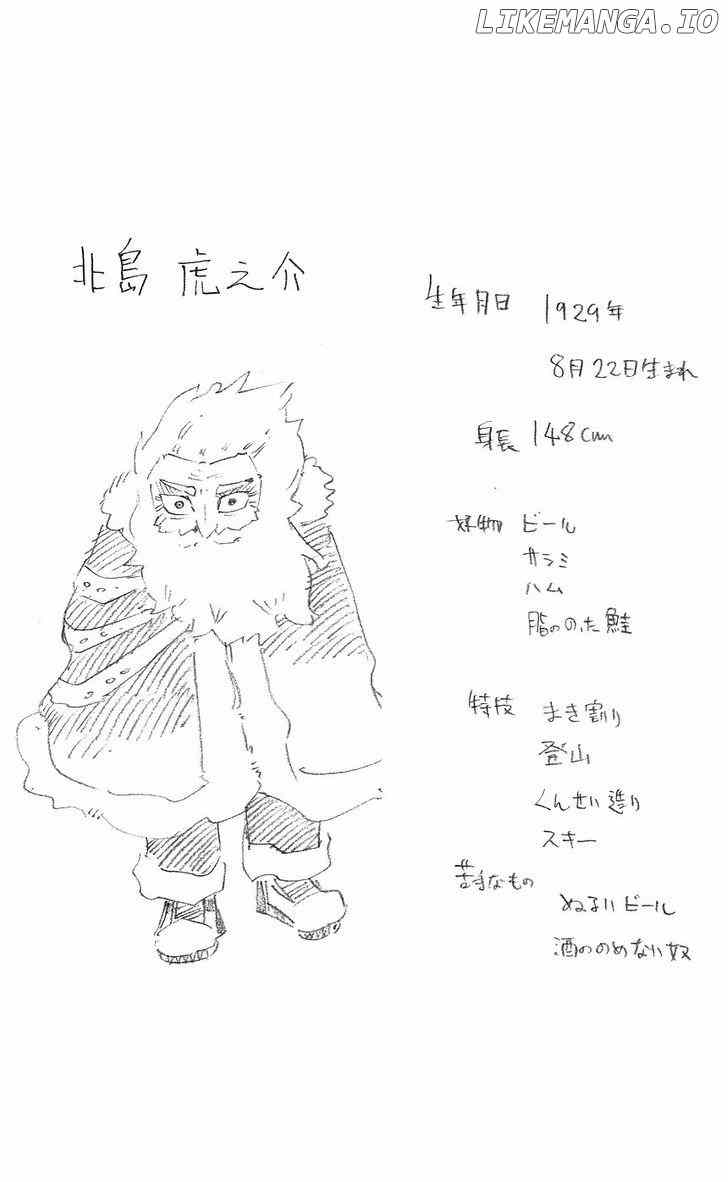 LIKEMANGA.IO
北島 虎之介
生年月日 1929年
8月22日生まれ
身長 148cm
好物 ビール
サラミ
ハム
脂ののった鮭
特技 まき割り
登山
くんせい造り
スキー
苦手なもの
ぬるいビール
酒ののめない奴